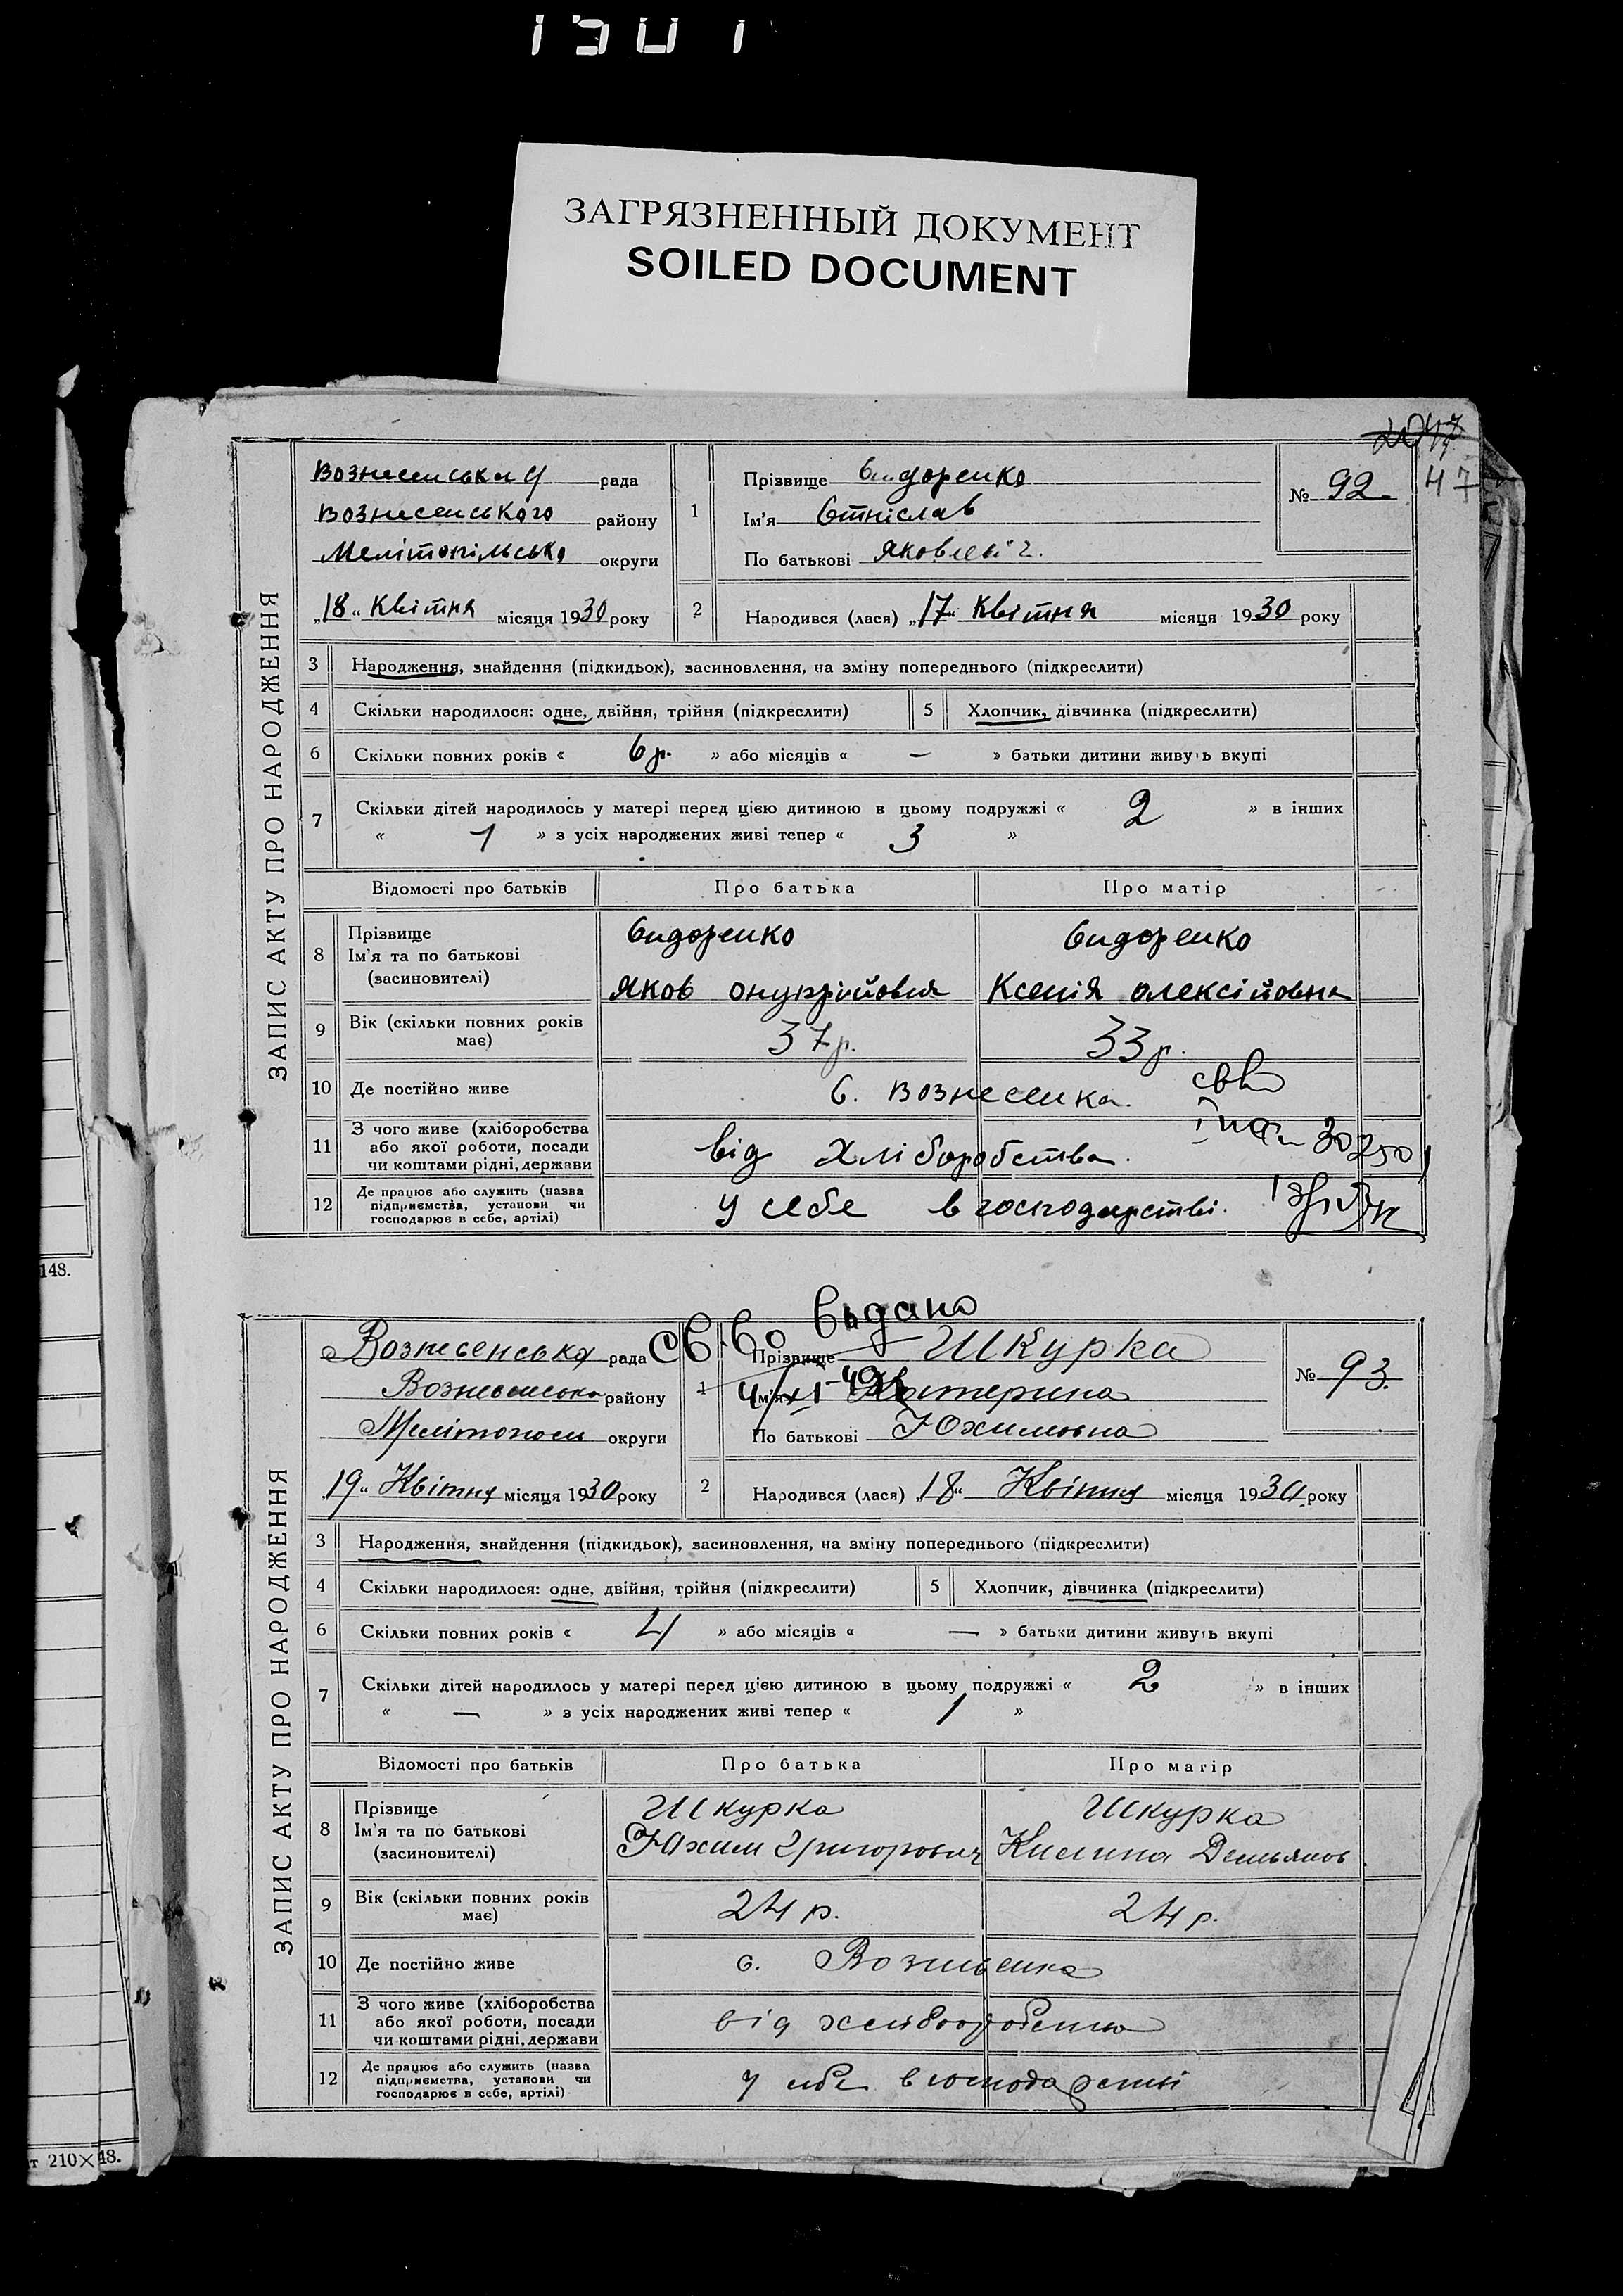 ЗАГРЯЗНЕННЫЙ ДОКУМЕНТ
SOILED DOCUMENT
47
ЗАПИС АКТУ ПРО НАРОДЖЕННЯ
Вознесенська рада
Вознесенського району
Мелітопільсько округи
„18“ Квітня місяця 1930 року
1 Прізвище Сидоренко
Ім'я Стніслав
По батькові Яковлевіч.
№ 92
2 Народився (лася) „17“ Квітня місяця 1930 року
3 Народження, знайдення (підкидьок), засиновлення, на зміну попереднього (підкреслити)
4 Скільки народилося: одне, двійня, трійня (підкреслити) 5 Хлопчик, дівчинка (підкреслити)
6 Скільки повних років « 6 р. » або місяців « — » батьки дитини живуть вкупі
7 Скільки дітей народилось у матері перед цією дитиною в цьому подружжі « 2 » в інших
« 1 » з усіх народжених живі тепер « 3 »
Відомості про батьків Про батька Про матір
8 Прізвище
Ім'я та по батькові
(засиновителі)
Сидоренко
Яков
Сидоренко
Ксенія Олексійовна
9 Вік (скільки повних років має) 37 р. 33 р.
10 Де постійно живе С. Вознесенка.
11 З чого живе (хліборобства
або якої роботи, посади
чи коштами рідні, держави
від хліборобства.
12 Де працює або служить (назва
підприємства, установи чи
господарює в себе, артілі)
у себе в господарстві.
148.
Св-во видано
ЗАПИС АКТУ ПРО НАРОДЖЕННЯ
Вознесенська рада
Вознесенсько району
округи
„19“ Квітня місяця 1930 року
1 Прізвище Шкурка
Ім'я Катерина
По батькові Юхимовна
№ 93.
2 Народився (лася) „18“ Квітня місяця 1930 року
3 Народження, знайдення (підкидьок), засиновлення, на зміну попереднього (підкреслити)
4 Скільки народилося: одне, двійня, трійня (підкреслити) 5 Хлопчик, дівчинка (підкреслити)
6 Скільки повних років « 4 » або місяців « — » батьки дитини живуть вкупі
7 Скільки дітей народилось у матері перед цією дитиною в цьому подружжі « 2 » в інших
« — » з усіх народжених живі тепер « 1 »
Відомості про батьків Про батька Про матір
8 Прізвище
Ім'я та по батькові
(засиновителі)
Шкурка
Юхим Григорович
Шкурка
Демьянов
9 Вік (скільки повних років має) 24 р. 24 р.
10 Де постійно живе с. Вознесенка
11 З чого живе (хліборобства
або якої роботи, посади
чи коштами рідні, держави
від хліборобства
12 Де працює або служить (назва
підприємства, установи чи
господарює в себе, артілі)
у себе в господарстві
т 210×48.